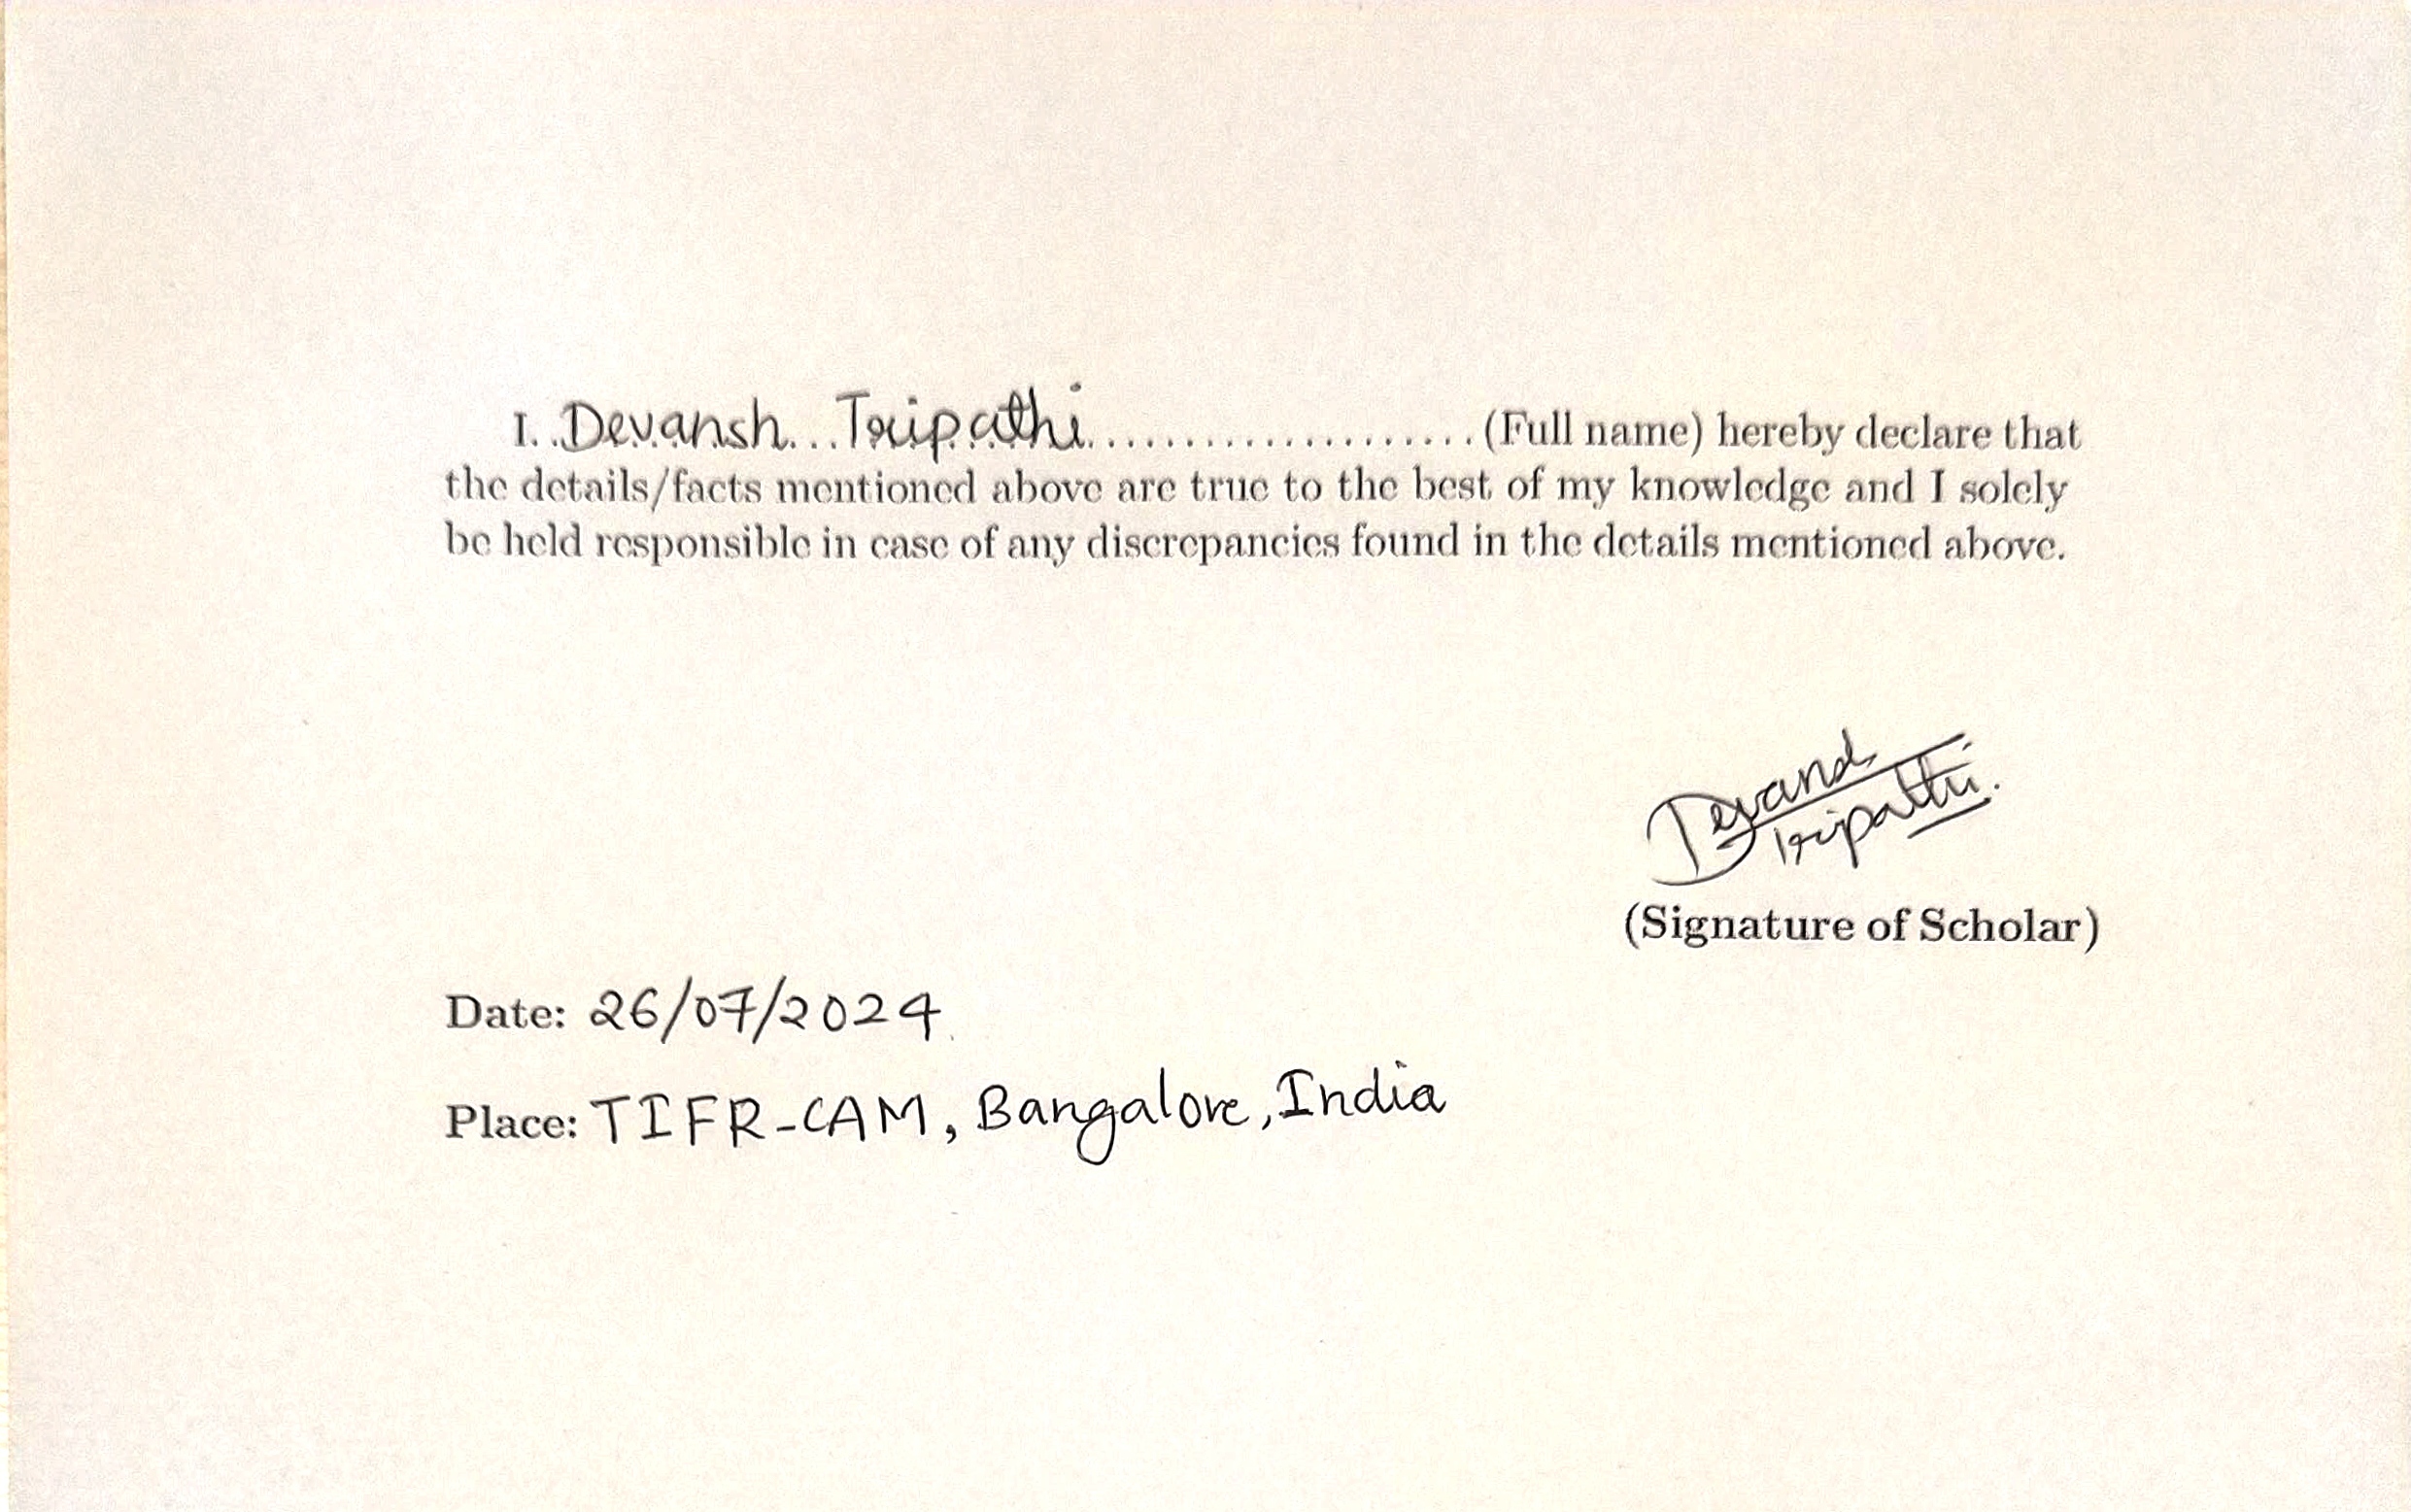 I. Devansh Tripathi (Full name) hereby declare that
the details/facts mentioned above are true to the best of my knowledge and I solely
be held responsible in case of any discrepancies found in the details mentioned above.
Devansh
Tripathi.
(Signature of Scholar)
Date: 26/07/2024
Place: TIFR-CAM, Bangalore, India